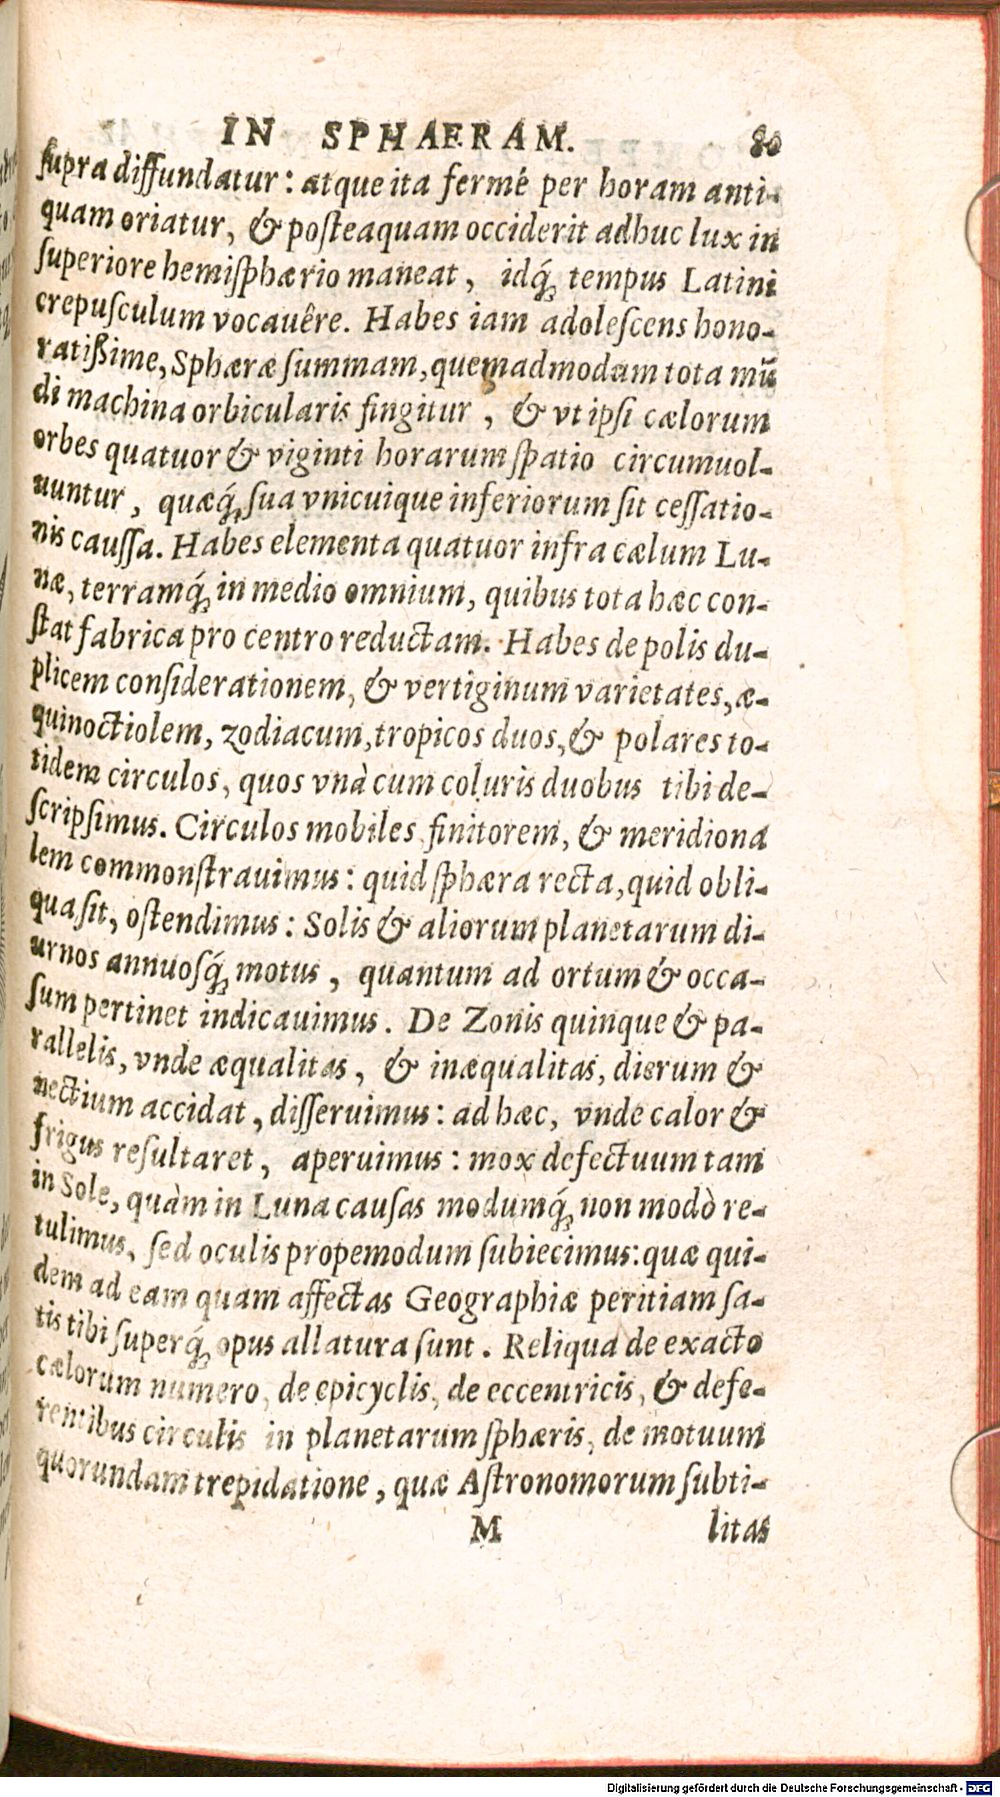 IN SPHAERAM. 80
ſupra diffundatur: atque ita fermé per horam anti-
quam oriatur, & poſteaquam occiderit adhuc lux in
ſuperiore hemiſphærio maneat, idq́; tempus Latini
crepuſculum vocauêre. Habes iam adoleſcens hono-
ratißime, Sphæræ ſummam, quemadmodum tota mũ
di machina orbicularis fingitur, & vt ipſi cælorum
orbes quatuor & viginti horarum ſpatio circumuol-
uuntur, quæq́; ſua vnicuique inferiorum ſit ceſſatio-
nis cauſſa. Habes elementa quatuor infra cælum Lu-
næ, terramq́; in medio omnium, quibus tota hæc con-
ſtat fabrica pro centro reductam. Habes de polis du-
plicem conſiderationem, & vertiginum varietates, æ-
quinoctiolem, zodiacum, tropicos duos, & polares to-
tidem circulos, quos vnà cum coluris duobus tibi de-
ſcripſimus. Circulos mobiles finitorem, & meridiona
lem commonſtrauimus: quid ſphæra recta, quid obli-
qua ſit, oſtendimus: Solis & aliorum planetarum di-
urnos annuoſq́; motus, quantum ad ortum & occa-
ſum pertinet indicauimus. De Zonis quinque & pa-
rallelis, vnde æqualitas, & inæqualitas, dierum &
nectium accidat, diſſeruimus: ad hæc, vnde calor &
frigus reſultaret, aperuimus: mox defectuum tam
in Sole, quàm in Luna cauſas modumq́; non modò re-
tulimus, ſed oculis propemodum ſubiecimus: quæ qui-
dem ad eam quam affectas Geographiæ peritiam ſa-
tis tibi ſuperq́; opus allatura ſunt. Reliqua de exacto
cælorum numero, de epicyclis, de eccentricis, & defe-
rentibus circulis in planetarum ſphæris, de motuum
quorundam trepidatione, quæ Aſtronomorum ſubti-
M litas
Digitalisierung gefördert durch die Deutsche Forschungsgemeinschaft - DFG